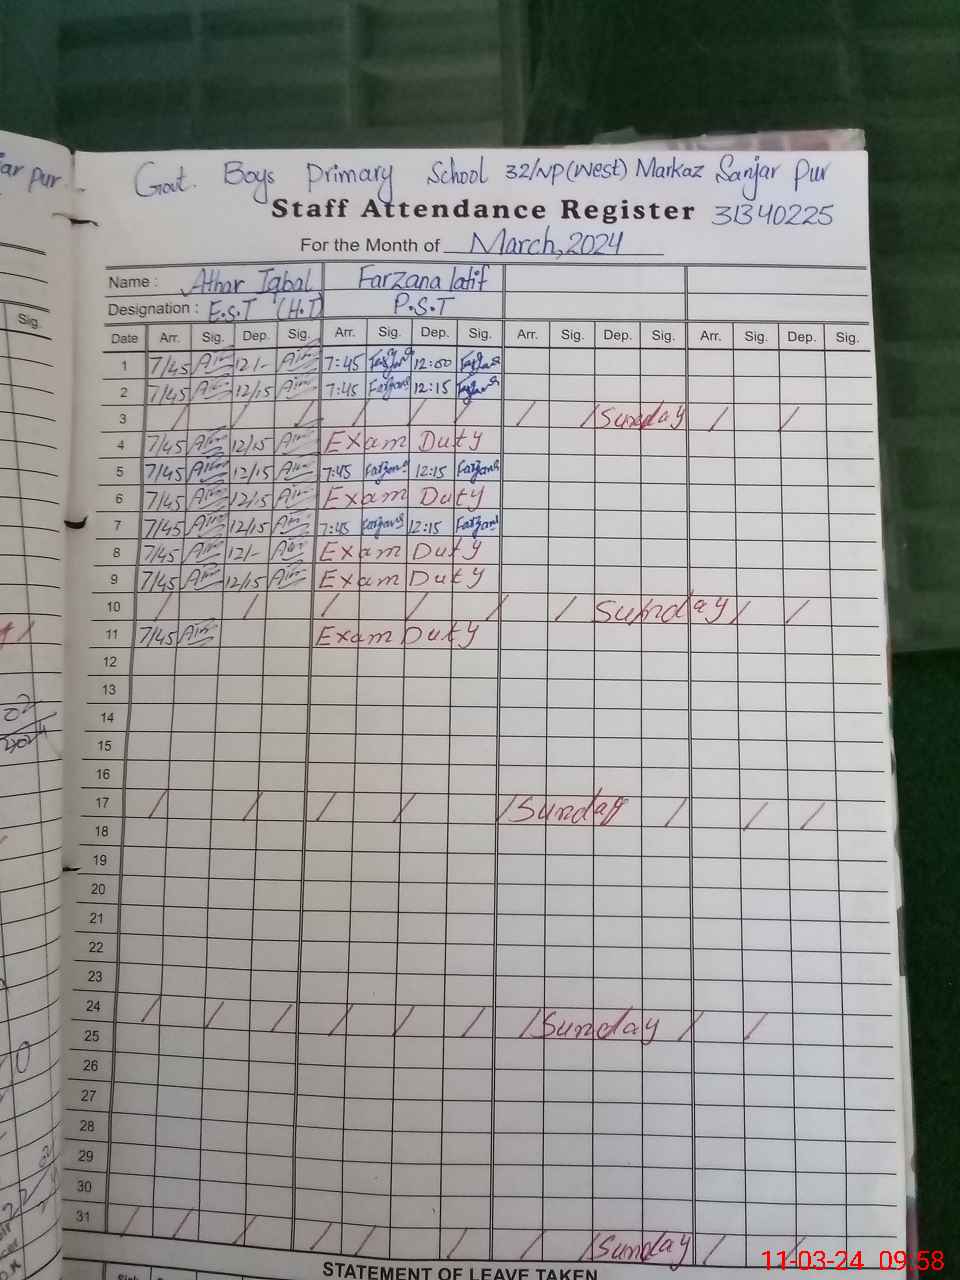 Govt. Boys Primary School 32/NP(West) Markaz Sanjar Pur
Staff Attendance Register 31340225
For the Month of March, 2024
Name : Athar Iqbal Farzana latif
Designation : E.S.T (H.T) P.S.T
Date Arr. Sig. Dep. Sig. Arr. Sig. Dep. Sig. Arr. Sig. Dep. Sig. Arr. Sig. Dep. Sig.
1 7/45 12/- 7:45 12:00
2 7/45 12/15 7:45 Farzana 12:15
3 / / / / / / / / Sunday / /
4 7/45 12/15 Exam Duty
5 7/45 12/15 7:45 Farzana 12:15 Farzana
6 7/45 12/15 Exam Duty
7 7/45 12/15 7:45 Farzana 12:15 Farzana
8 7/45 12/- Exam Duty
9 7/45 12/15 Exam Duty
10 / / / / / / Sunday / /
11 7/45 Exam Duty
12
13
14
15
16
17 / / / / / Sunday / / /
18
19
20
21
22
23
24 / / / / / / / Sunday / /
25
26
27
28
29
30
31 / / / / / / / / / Sunday / /
STATEMENT OF LEAVE TAKEN
jar pur
Sig.
02
2024
11-03-24 09:58